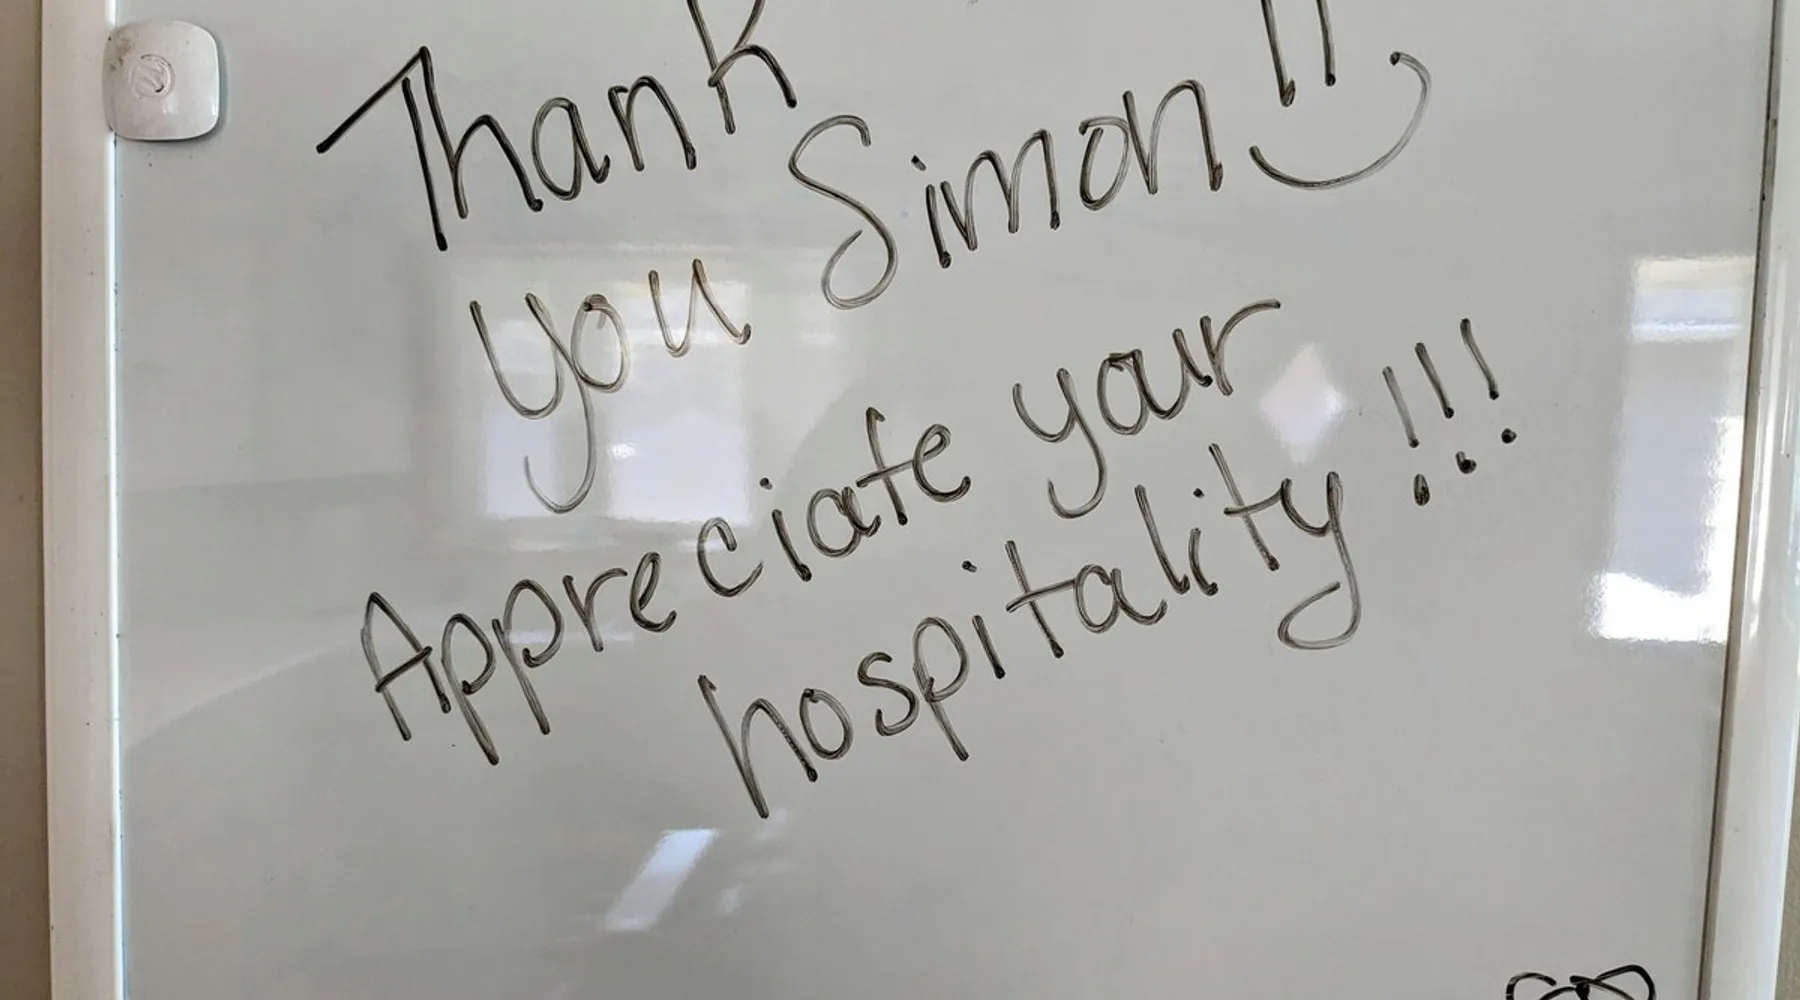 Thank
you Simon!!
Appreciate your
hospitality!!!